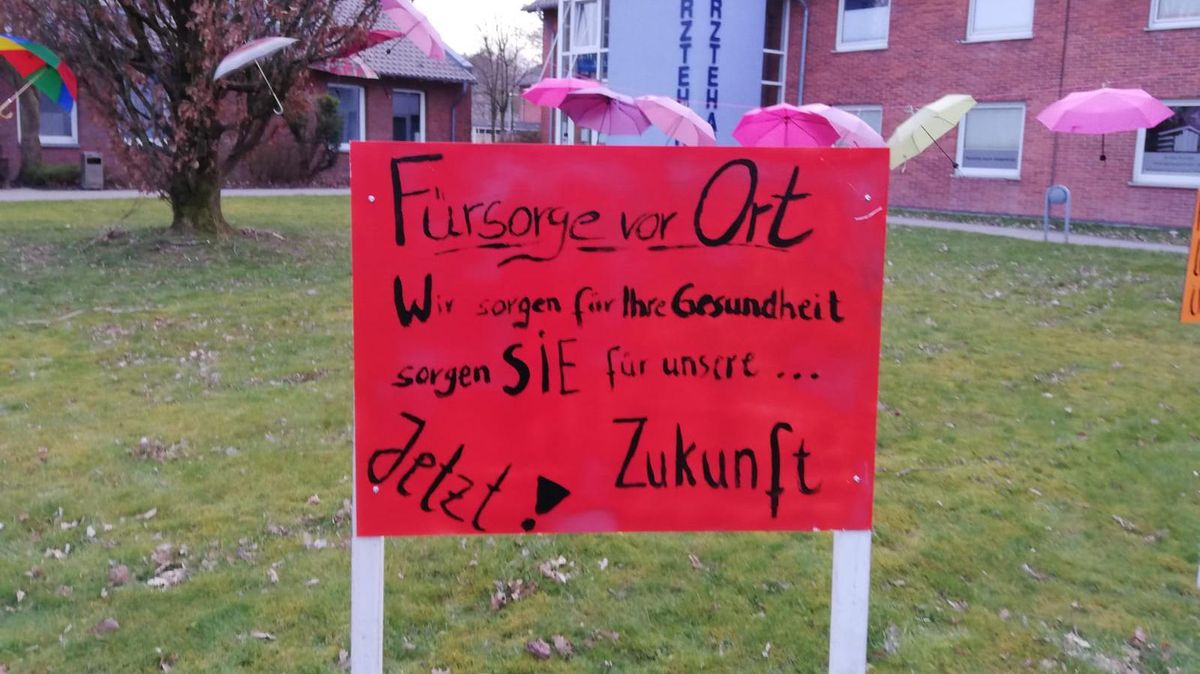 ÄRZTEHA
ÄRZTEHA
Fürsorge vor Ort
Wir sorgen für Ihre Gesundheit
sorgen SIE für unsere ...
Jetzt! Zukunft